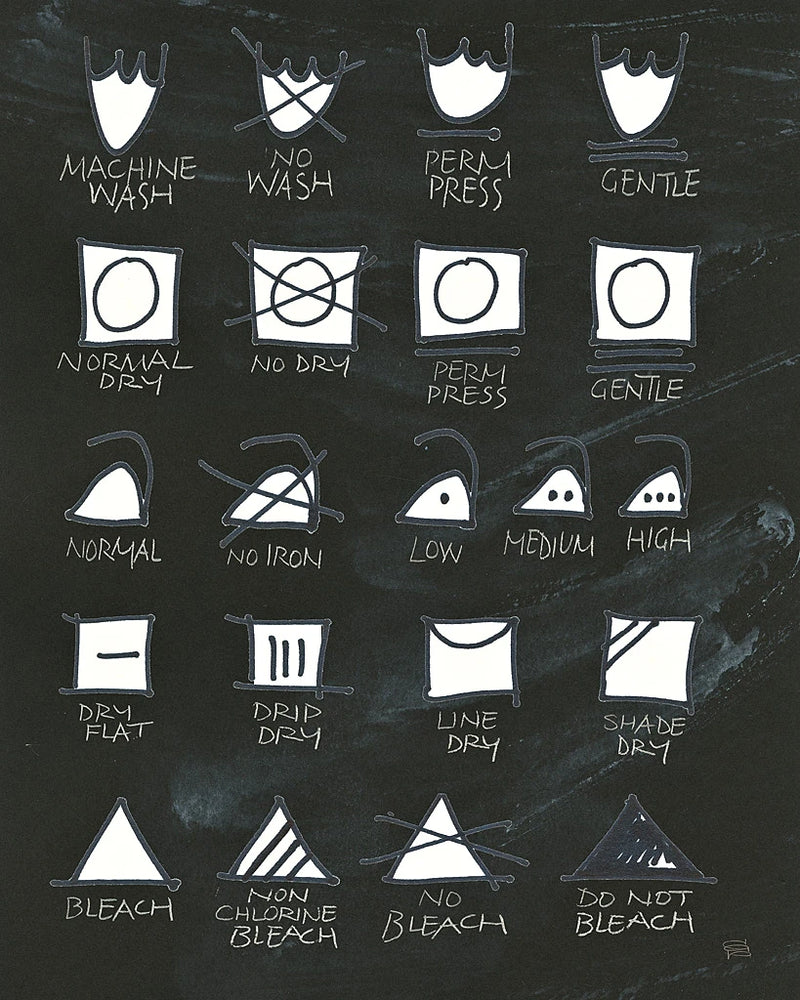 MACHINE
WASH
NO
WASH
PERM
PRESS
GENTLE
NORMAL
DRY
NO DRY
PERM
PRESS
GENTLE
NORMAL
NO IRON
LOW
MEDIUM
HIGH
DRY
FLAT
DRIP
DRY
LINE
DRY
SHADE
DRY
BLEACH
NON
CHLORINE
BLEACH
NO
BLEACH
DO NOT
BLEACH